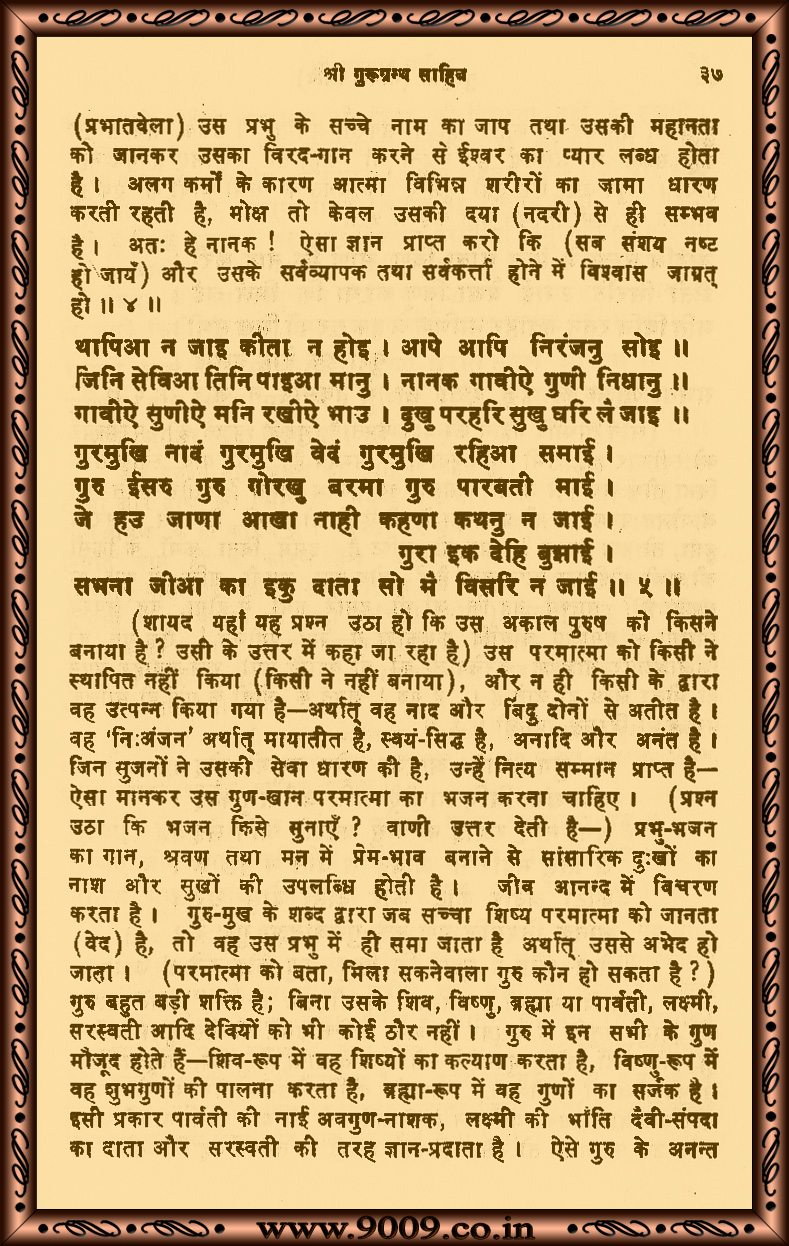 श्री गुरूग्रन्थ साहिब ३७
(प्रभातवेला) उस प्रभु के सच्चे नाम का जाप तथा उसकी महानता
को जानकर उसका विरद-गान करने से ईश्वर का प्यार लब्ध होता
है। अलग कर्मों के कारण आत्मा विभिन्न शरीरों का जामा धारण
करती रहती है, मोक्ष तो केवल उसकी दया (नदरी) से ही सम्भव
है। अतः हे नानक ! ऐसा ज्ञान प्राप्त करो कि (सब संशय नष्ट
हो जायँ) और उसके सर्वव्यापक तथा सर्वकर्त्ता होने में विश्वास जाग्रत्
हो ॥ ४ ॥
थापिआ न जाइ कीता न होइ । आपे आपि निरंजनु सोइ ॥
जिनि सेविआ तिनि पाइआ मानु । नानक गावीऐ गुणी निधानु ॥
गावीऐ सुणीऐ मनि रखीऐ भाउ । दुखु परहरि सुखु घरि लै जाइ ॥
गुरमुखि नादं गुरमुखि वेदं गुरमुखि रहिआ समाई ।
गुरु ईसरु गुरु गोरखु बरमा गुरु पारबती माई ।
जे हउ जाणा आखा नाही कहणा कथनु न जाई ।
गुरा इक देहि बुझाई ।
सभना जीआ का इकु दाता सो मै विसरि न जाई ॥ ५ ॥
(शायद यहाँ यह प्रश्न उठा हो कि उस अकाल पुरुष को किसने
बनाया है ? उसी के उत्तर में कहा जा रहा है) उस परमात्मा को किसी ने
स्थापित नहीं किया (किसी ने नहीं बनाया), और न ही किसी के द्वारा
वह उत्पन्न किया गया है—अर्थात् वह नाद और बिंदु दोनों से अतीत है।
वह ‘निःअंजन’ अर्थात् मायातीत है, स्वयं-सिद्ध है, अनादि और अनंत है।
जिन सुजनों ने उसकी सेवा धारण की है, उन्हें नित्य सम्मान प्राप्त है—
ऐसा मानकर उस गुण-खान परमात्मा का भजन करना चाहिए। (प्रश्न
उठा कि भजन किसे सुनाएँ ? वाणी उत्तर देती है—) प्रभु-भजन
का गान, श्रवण तथा मन में प्रेम-भाव बनाने से सांसारिक दुःखों का
नाश और सुखों की उपलब्धि होती है। जीव आनन्द में विचरण
करता है। गुरु-मुख के शब्द द्वारा जब सच्चा शिष्य परमात्मा को जानता
(वेद) है, तो वह उस प्रभु में ही समा जाता है अर्थात् उससे अभेद हो
जाता। (परमात्मा को बता, मिला सकनेवाला गुरु कौन हो सकता है ?)
गुरु बहुत बड़ी शक्ति है; बिना उसके शिव, विष्णु, ब्रह्मा या पार्वती, लक्ष्मी,
सरस्वती आदि देवियों को भी कोई ठौर नहीं। गुरु में इन सभी के गुण
मौजूद होते हैं—शिव-रूप में वह शिष्यों का कल्याण करता है, विष्णु-रूप में
वह शुभगुणों की पालना करता है, ब्रह्मा-रूप में वह गुणों का सर्जक है।
इसी प्रकार पार्वती की नाईं अवगुण-नाशक, लक्ष्मी की भाँति दैवी-संपदा
का दाता और सरस्वती की तरह ज्ञान-प्रदाता है। ऐसे गुरु के अनन्त
www.9009.co.in